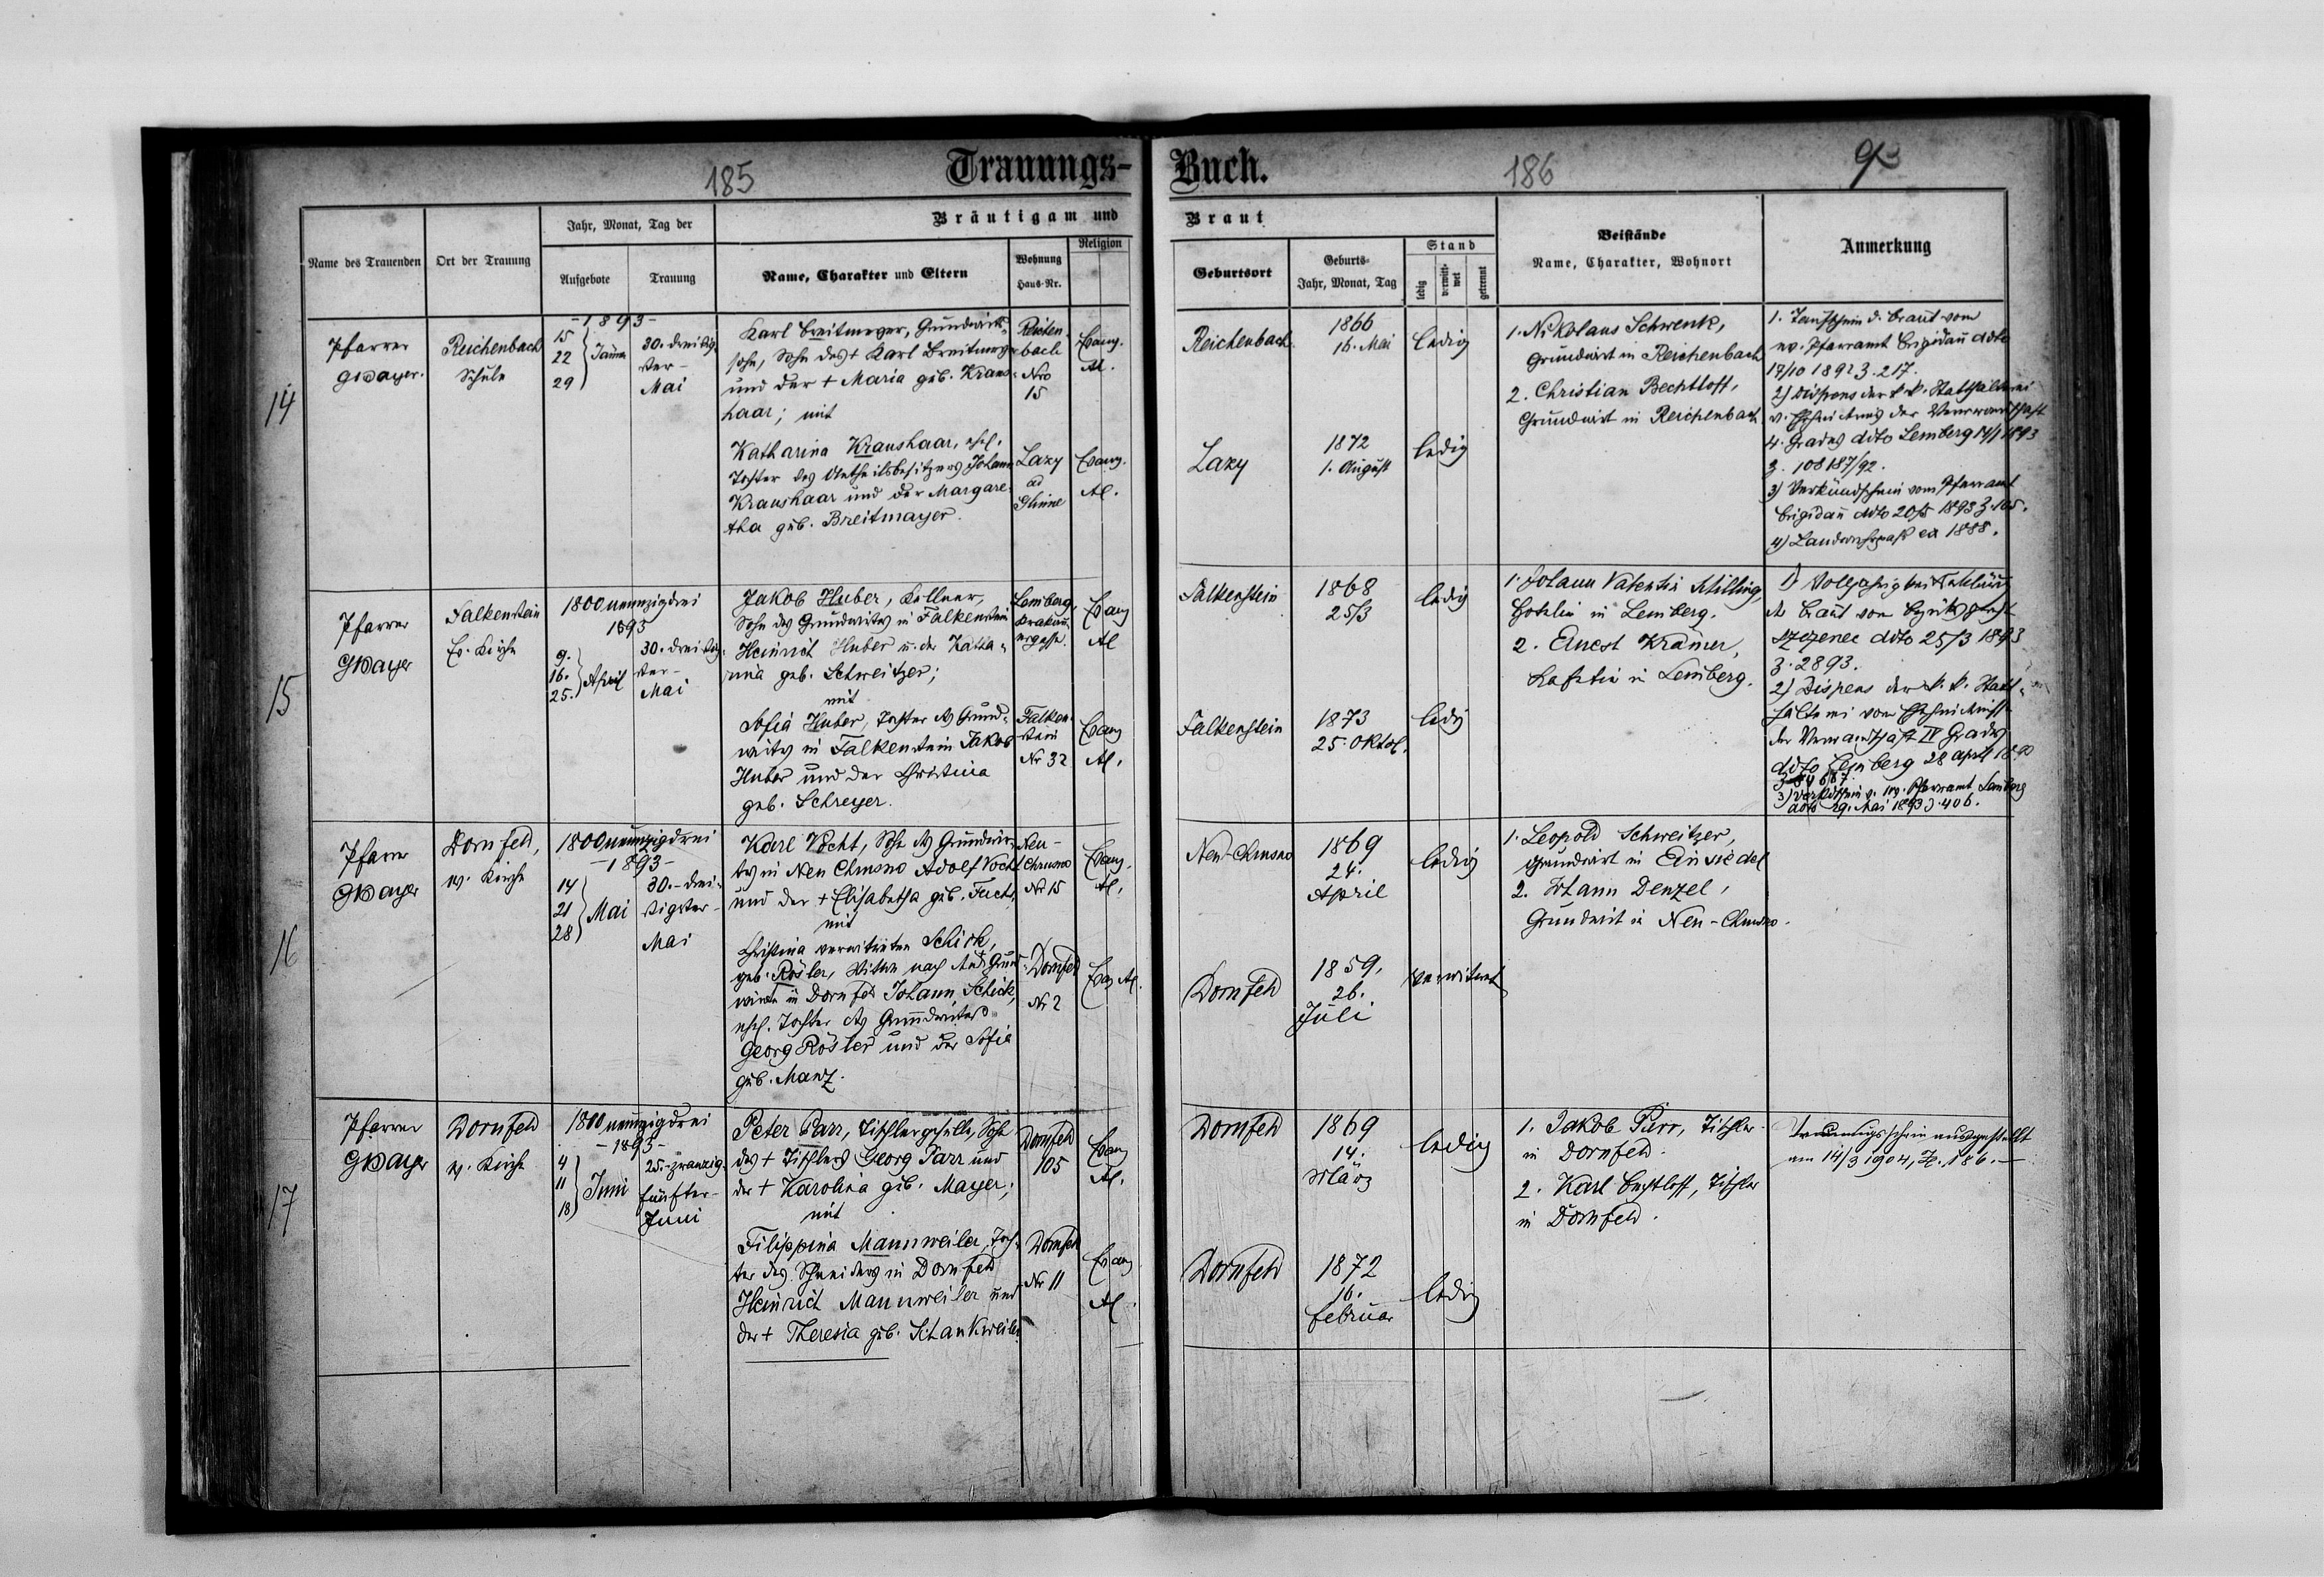 185
Trauungs-
Buch.
186
93
Bräutigam und
Braut
Name des Trauenden
Ort der Trauung
Jahr, Monat, Tag der
Aufgebote
Trauung
Name, Charakter und Eltern
Wohnung
Haus-Nr.
Religion
Geburtsort
Geburts-
Jahr, Monat, Tag
Stand
ledig
verwitt-
wet
getrennt
Beistände
Name, Charakter, Wohnort
Anmerkung
14
Pfarrer
GMayer.
Reichenbach
Schule
-1893-
15
22
29
Jänner
30. dreißig-
ster-
Mai
Karl Breitmayer, Grundwirts-
sohn, Sohn des + Karl Breitmayer
und der + Maria geb. Kraus-
haar; mit
Katharina Kraushaar, ehel.
Tochter des Antheilsbesitzers Johann
Kraushaar und der Margare-
tha geb. Breitmayer.
Reichen-
bach
Nro
15
Lazy
ad
Glinne
Evang.
Al.
Evang.
Al.
Reichenbach
1866
16. Mai
ledig
Lazy
1872
1. August
ledig
1. Nikolaus Schwenk,
Grundwirt in Reichenbach
2. Christian Bechtloff,
Grundwirt in Reichenbach
1. Taufschein d. Braut vom
ev. Pfarramt Brigidau ddto
17/10 1892 Z. 217.
2) Dispens der k. k. Statthalterei
v. Ehehindernis der Verwandtschaft
4. Grades ddto Lemberg 14/1 1893
Z. 108187/92.
3) Verkündschein vom Pfarramt
Brigidau ddto 20/5 1893 Z. 105.
4) ex 1888.
15
Pfarrer
GMayer
Falkenstein
Ev. Kirche
1800neunzigdrei
1893
9.
16.
25.
April
30. dreißig-
ster-
Mai
Jakob Huber, Kellner,
Sohn des Grundwirtes in Falkenstein
Heinrich Huber u. der Katha-
rina geb. Schweitzer;
mit
Sofia Huber, Tochter des Grund-
wirtes in Falkenstein Jakob
Huber und der Christina
geb. Schreyer.
Lemberg,
Krakau-
ergasse.
Falken-
stein
Nr 32
Evang
Al
Evang
Al.
Falkenstein
1868
25/3
ledig
Falkenstein
1873
25. Oktob.
ledig
1. Johann Valentin Schilling,
Hotelier in Lemberg.
2. Ernest Krämer,
Cafetier in Lemberg.
1) Volljährigkeitserklärung
der Braut vom Bezirksgericht
Szczerzec ddto 25/3 1893
Z. 2893.
2) Dispens der k. k. Statt-
halterei vom Ehehindernisse
der Verwandtschaft IV Grades
ddto Lemberg 28 April 1893
3) Verkündschein v. ev. Pfarramt Lemberg
ddto 29. Mai 1893 Z. 406.
16
Pfarrer
GMayer
Dornfeld,
ev. Kirche
1800neunzigdrei
-1893-
14
21
28
Mai
30.- drei-
ßigster-
Mai
Karl Vocht, Sohn des Grundwir-
tes in Neu Chrusno Adolf Vocht
und der + Elisabetha geb. Fuchs,
mit
Christina verwitweten Schick,
geb. Rösler, Witwe nach dem Grund-
wirte in Dornfeld Johann Schick,
ehel. Tochter des Grundwirtes
Georg Rösler und der Sofia
geb. Manz.
Neu-
Chrusno
Nr 15
Dornfeld
Nr 2
Evang.
Al.
Evang Al.
Neu-Chrusno
1869
24.
April
ledig
Dornfeld
1859.
26.
Juli
verwitwet
1. Leopold Schweitzer,
Grundwirt in Einsiedel
2. Johann Denzel,
Grundwirt in Neu-Chrusno.
17
Pfarrer
GMayer
Dornfeld
ev. Kirche
1800neunzigdrei
-1893-
4
11
18
Juni
25.-zwanzig-
fünfter-
Juni
Peter Parr, Tischlergeselle, Sohn
des + Tischlers Georg Parr und
der + Karolina geb. Mayer;
mit
Filippina Mannweiler, Toch-
ter des Schneiders in Dornfeld
Heinrich Mannweiler und
der + Theresia geb. Schankweiler.
Dornfeld
105
Dornfeld
Nr 11
Evang
Al.
Evang
Al.
Dornfeld
1869
14.
März
ledig
Dornfeld
1872
16.
Februar
ledig
1. Jakob Parr, Tischler
in Dornfeld.
2. Karl Bechtloff, Tischler
in Dornfeld.
Trauungsschein ausgestellt
am 14/3 1904, Z. 186.-